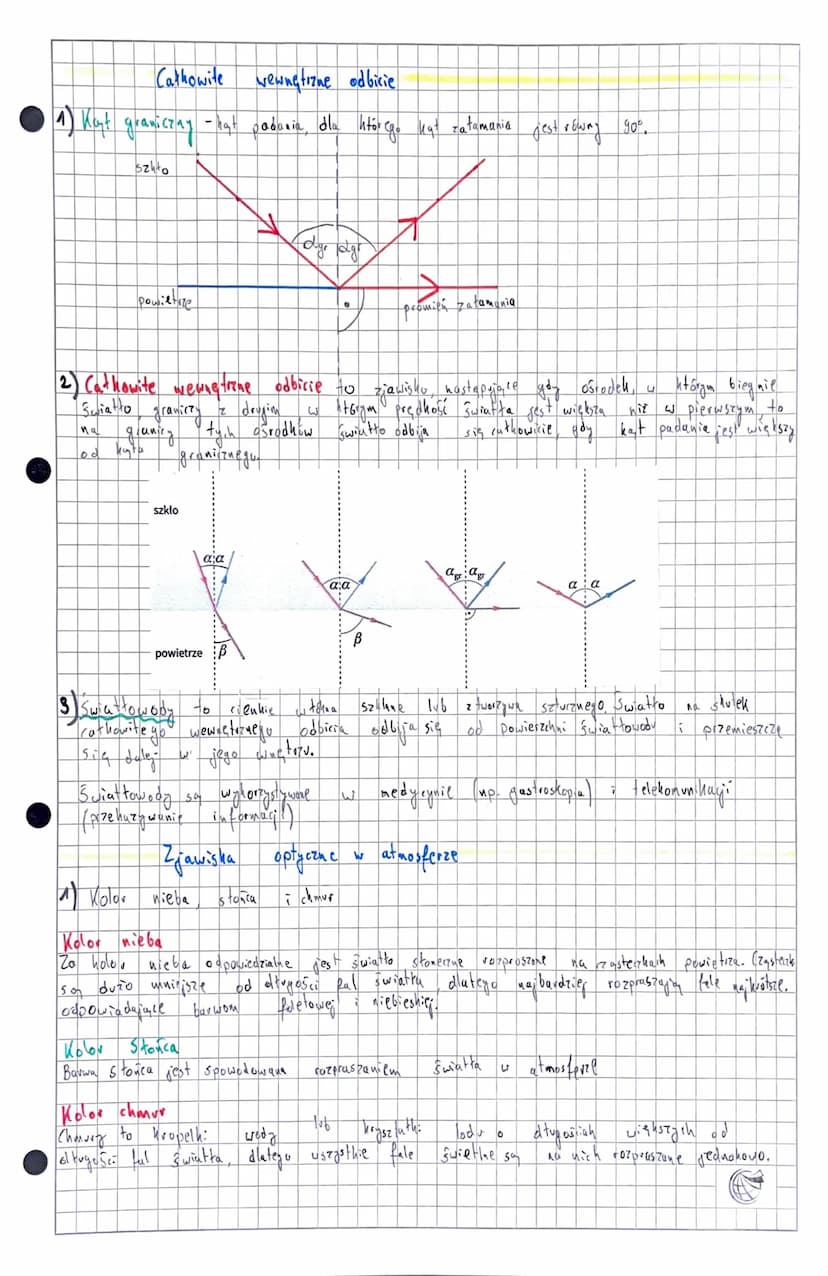 Całkowite wewnętrzne odbicie
1) Kąt graniczny - kąt padania, dla którego kąt załamania jest równy 90°.
szkło
αgr αgr
powietrze
promień załamania
2) Całkowite wewnętrzne odbicie to zjawisko, następujące gdy ośrodek, w którym biegnie
światło, graniczy z drugim, w którym prędkość światła jest większa niż w pierwszym, to
na granicy tych ośrodków światło odbija się całkowicie, gdy kąt padania jest większy
od kąta granicznego.
szkło
α α
α α
αgr αgr
α α
β
β
powietrze
3) Światłowody to cienkie włókna szklane lub z tworzywa sztucznego. Światło na skutek
całkowitego wewnętrznego odbicia odbija się od powierzchni światłowodu i przemieszcza
się dalej w jego wnętrzu.
Światłowody są wykorzystywane w medycynie (np. gastroskopia) i telekomunikacji
(przekazywanie informacji)
Zjawiska optyczne w atmosferze
1) Kolor nieba, słońca i chmur
Kolor nieba
Za kolor nieba odpowiedzialne jest światło słoneczne rozproszone na cząsteczkach powietrza. Cząsteczki
są dużo mniejsze od długości fal światła, dlatego najbardziej rozpraszają fale najkrótsze.
odpowiadające barwom fioletowej i niebieskiej.
Kolor Słońca
Barwa słońca jest spowodowana rozpraszaniem światła w atmosferze
Kolor chmur
Chmury to kropelki wody lub kryształki lodu o długościach większych od
długości fal światła, dlatego wszystkie fale świetlne są na nich rozpraszane jednakowo.